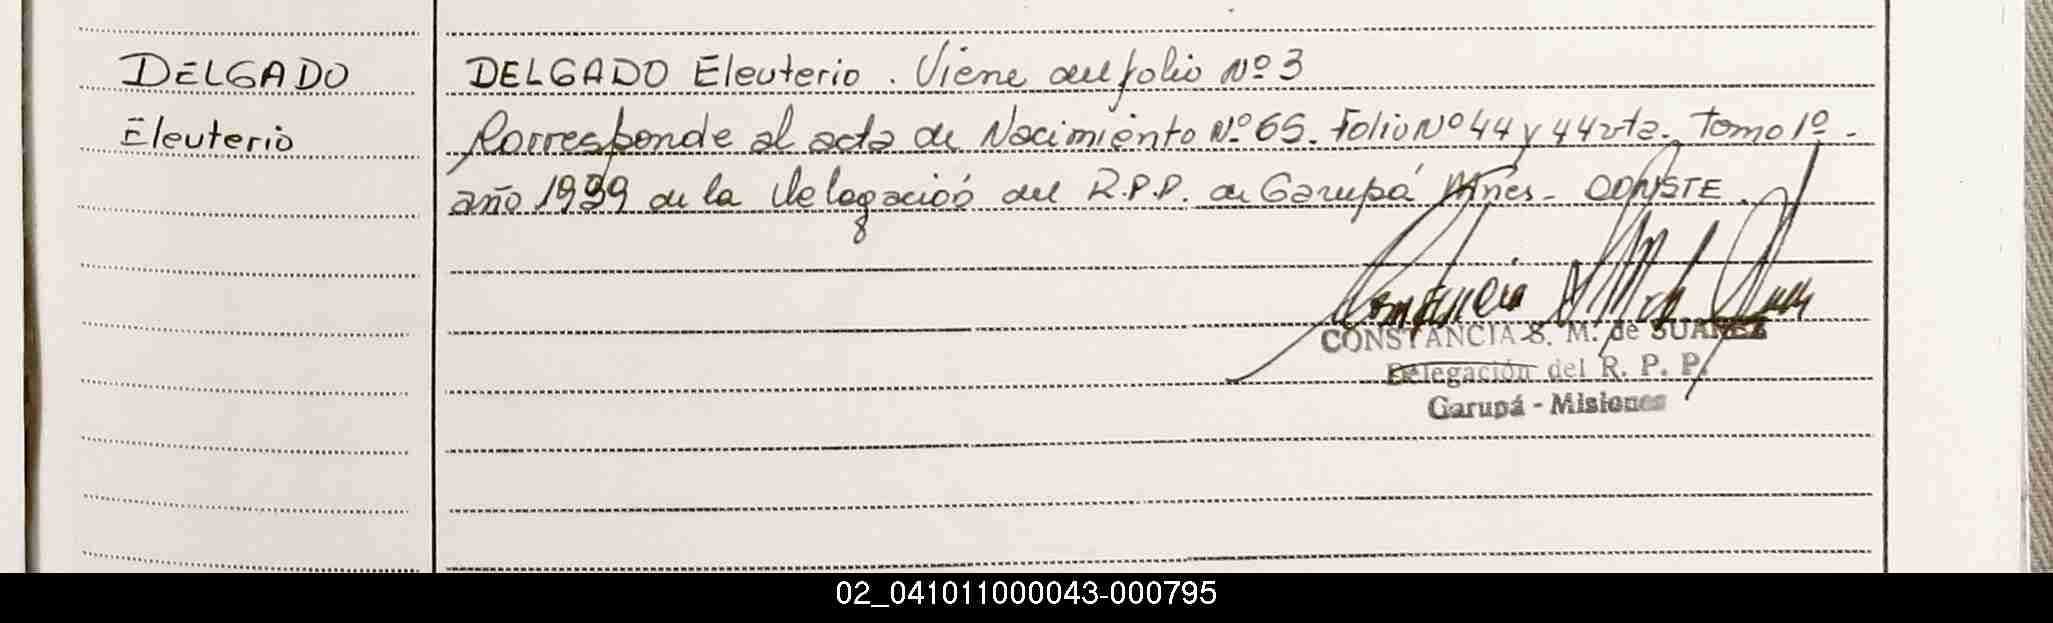 DELGADO
Eleuterio
DELGADO Eleuterio. Viene del folio Nº 3
Corresponde al acta de Nacimiento Nº 65. Folio Nº 44 y 44 vta. Tomo 1º.
año 1939 de la Delegació del R.P.P. de Garupá Mnes. CONSTE.
CONSTANCIA S. M. de SUAREZ
Delegación del R. P. P.
Garupá - Misiones
02_041011000043-000795